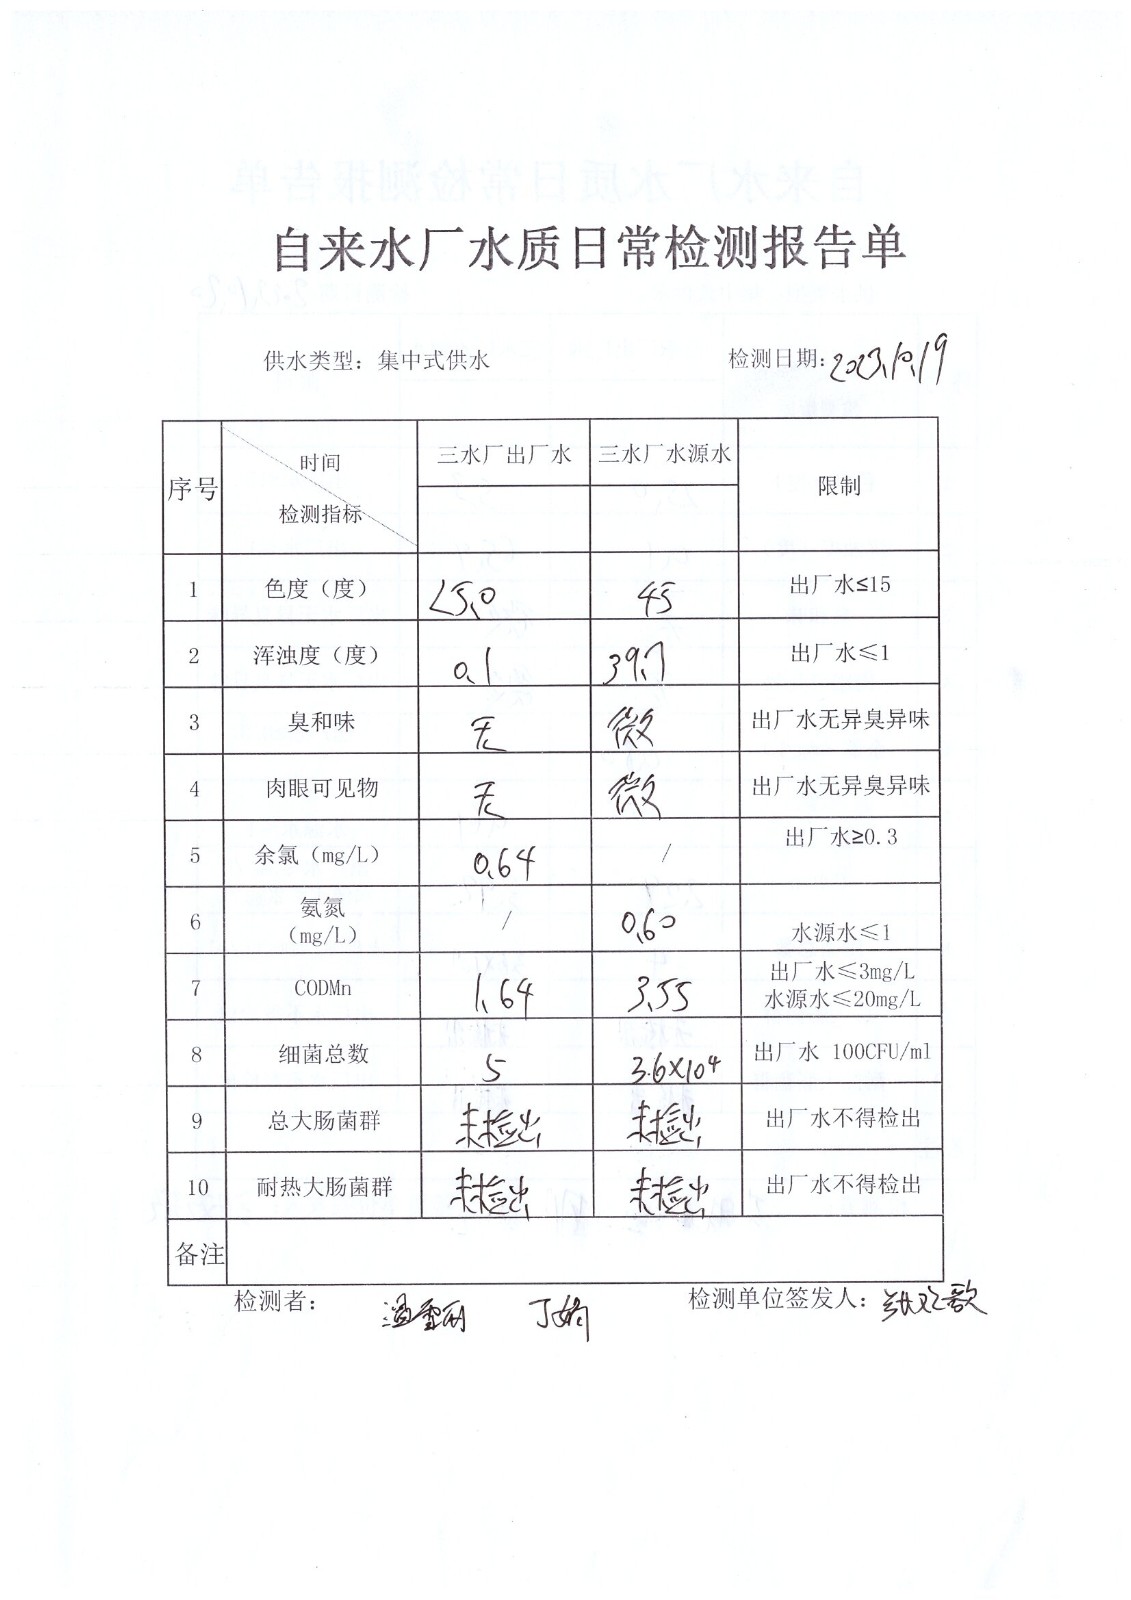 自来水厂水质日常检测报告单
供水类型：集中式供水 检测日期：2023.10.19
序号 时间 检测指标 三水厂出厂水 三水厂水源水 限制
1 色度（度） <5.0 45 出厂水≤15
2 浑浊度（度） 0.1 39.7 出厂水≤1
3 臭和味 无 微 出厂水无异臭异味
4 肉眼可见物 无 微 出厂水无异臭异味
5 余氯（mg/L） 0.64 / 出厂水≥0.3
6 氨氮（mg/L） / 0.60 水源水≤1
7 CODMn 1.64 3.55 出厂水≤3mg/L 水源水≤20mg/L
8 细菌总数 5 3.6×10⁴ 出厂水 100CFU/ml
9 总大肠菌群 未检出 未检出 出厂水不得检出
10 耐热大肠菌群 未检出 未检出 出厂水不得检出
备注
检测者： 丁娇 检测单位签发人：